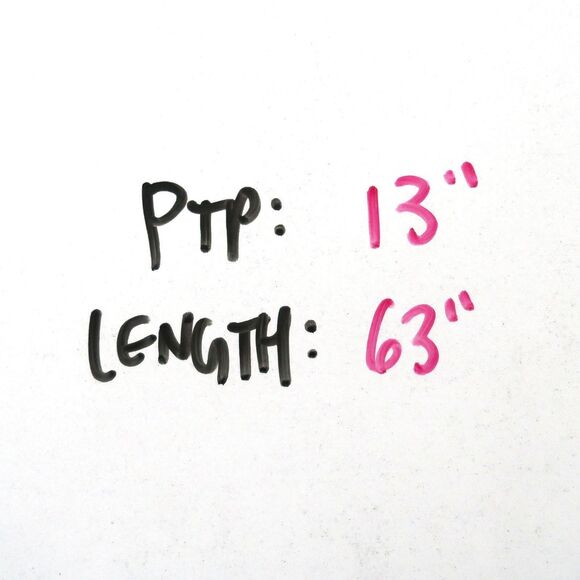 PTP: 13"
LENGTH: 63"